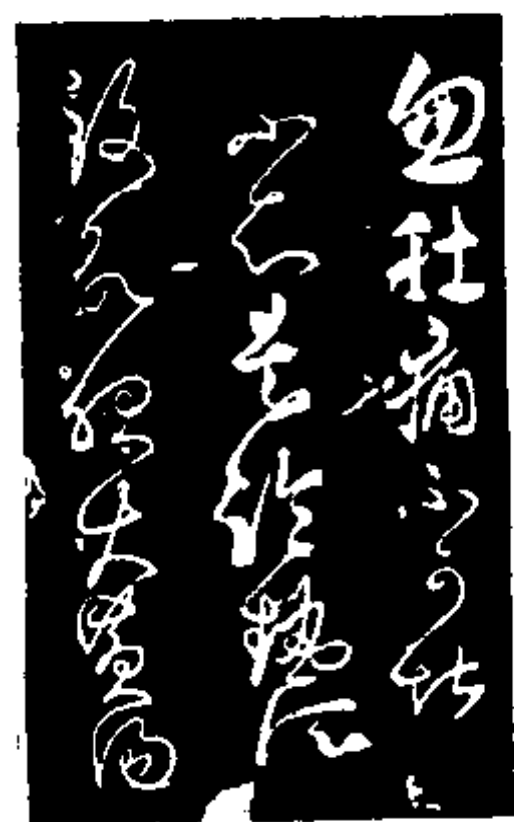 忽肚痛不可堪
不知是冷熱所
致欲服大黃湯